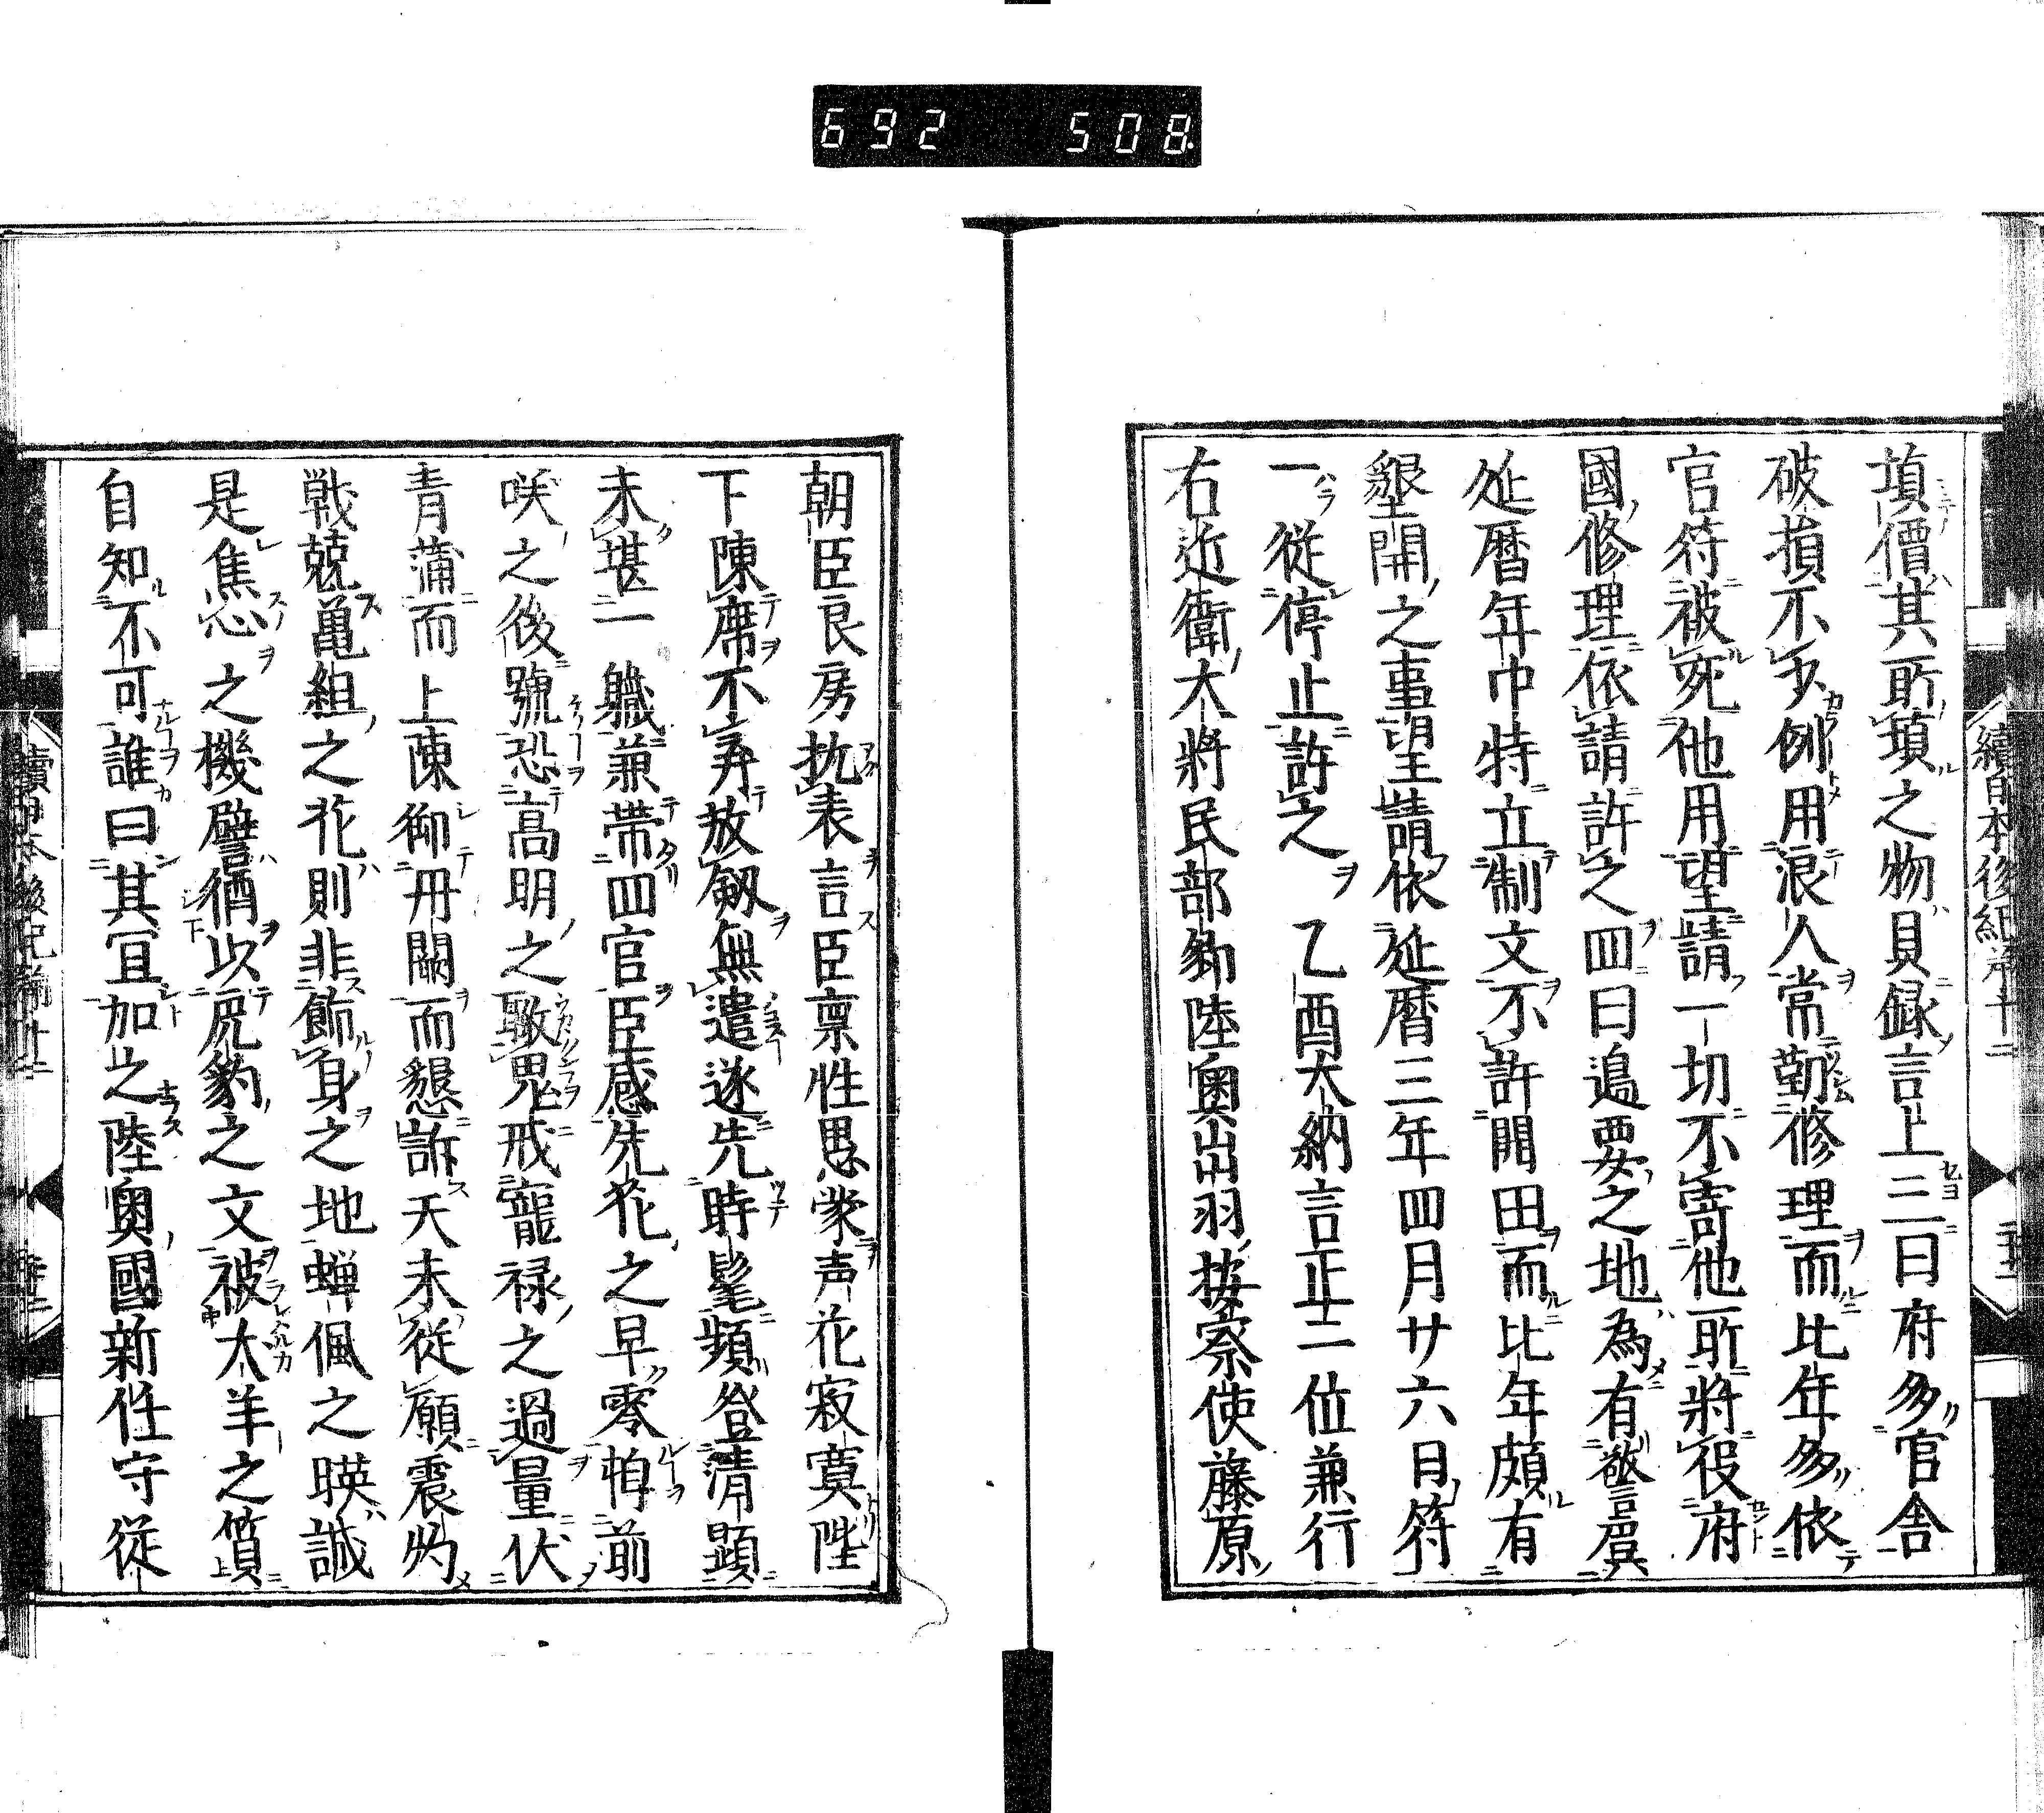 692 508
續日本後紀卷十二
塡價其所塡之物具録言上三曰府多官舎
破損不少例用浪人常勤修理而比年多依
官符被宛他用望請一切不寄他所將役府
國修理依請許之四曰邊要之地為有警虞
延暦年中特立制文不許開田而比年頗有
墾開之事望請依延暦三年四月廿六日符
一從停止許之 乙酉大納言正二位兼行
右近衛大將民部卿陸奥出羽按察使藤原
朝臣良房抗表言臣禀性愚蒙声花寂寞陛
下陳席不弃放劔無遣遂先時髦頻登清顕
未堪一軄兼帯四官臣感先花之早零怕前
咲之後號恐高明之瞰鬼戒寵禄之過量伏
青蒲而上陳御丹闕而懇訴天未從願震灼
戦兢亀組之花則非飾身之地蝉佩之暎誠
是焦心之機譬猶以虎豹之文被犬羊之質
自知不可誰曰其冝加之陸奥國新任守從